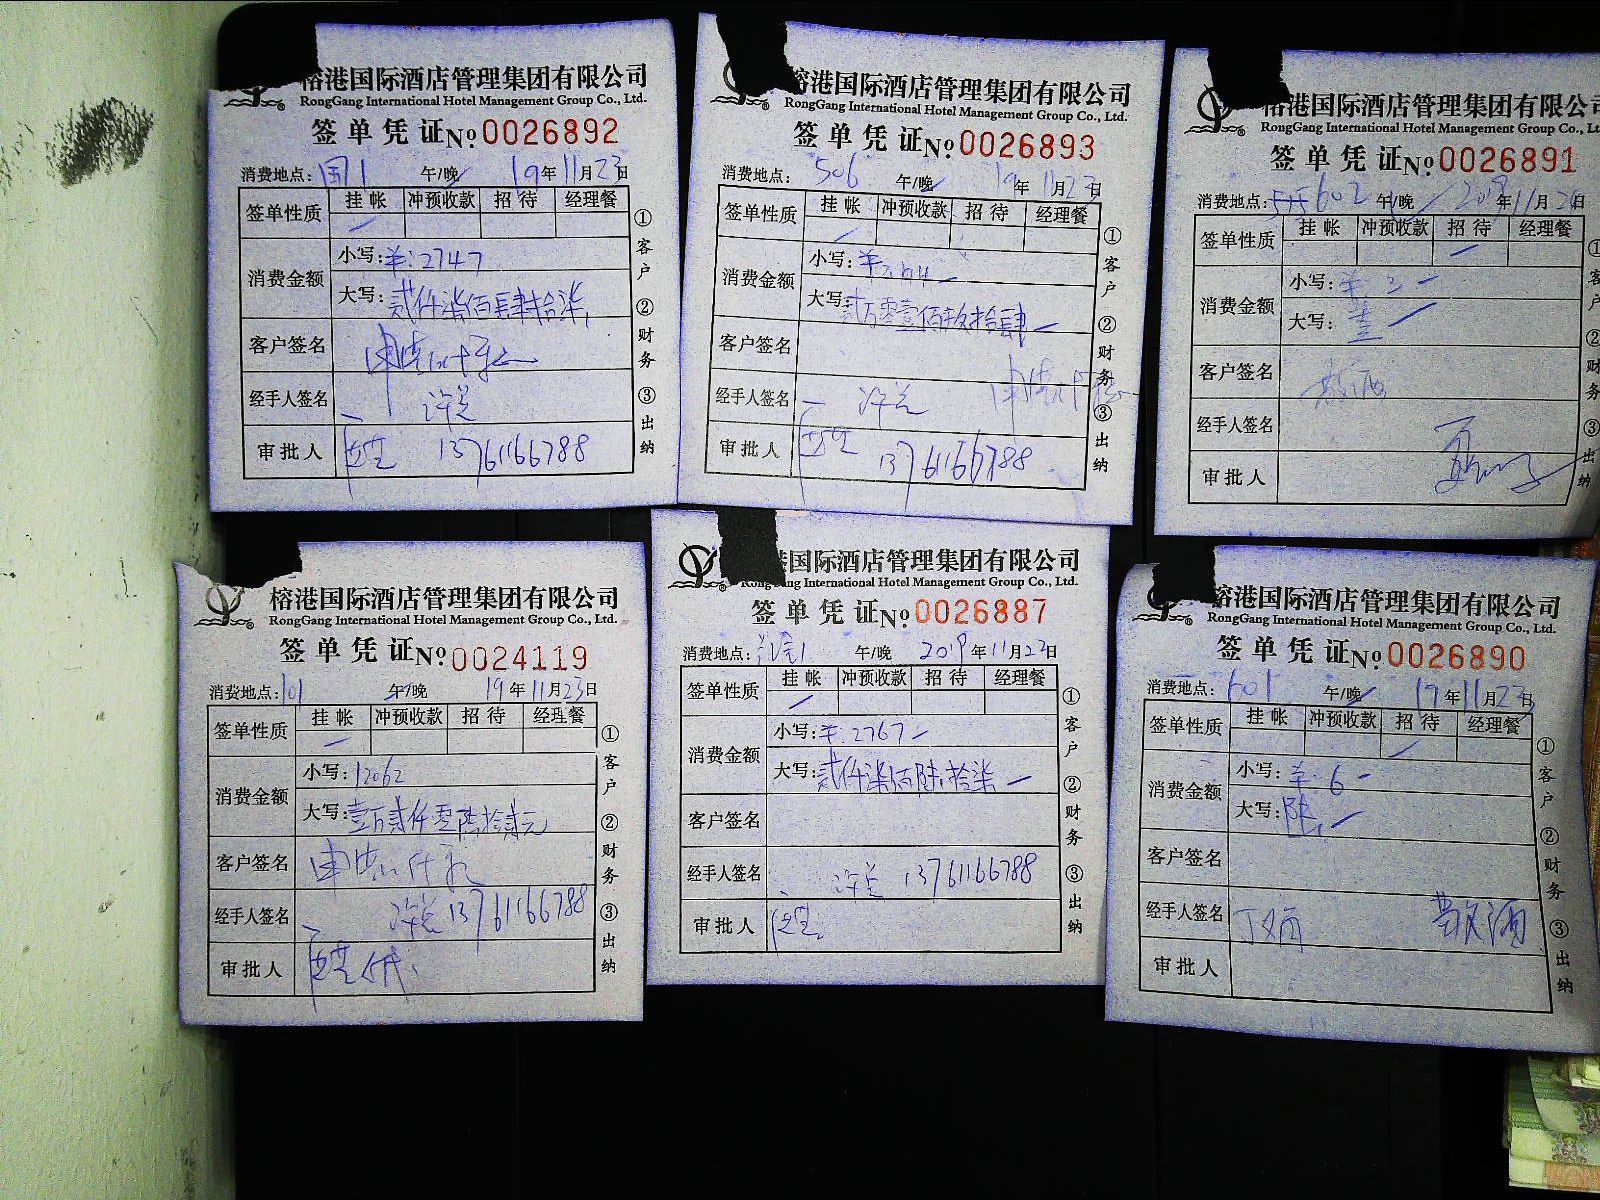 榕港国际酒店管理集团有限公司
RongGang International Hotel Management Group Co., Ltd.
签单凭证 No 0026892
消费地点: 国1 午/晚 19年11月23日
签单性质 挂帐 冲预收款 招待 经理餐
消费金额 小写: ¥:2747
大写: 贰仟柒佰肆拾柒
客户签名
经手人签名
审批人 13761166788
①客户 ②财务 ③出纳
榕港国际酒店管理集团有限公司
RongGang International Hotel Management Group Co., Ltd.
签单凭证 No 0026893
消费地点: 506 午/晚 19年11月23日
签单性质 挂帐 冲预收款 招待 经理餐
消费金额 小写:
大写: 贰万零壹佰玖拾肆
客户签名
经手人签名
审批人 13761166788
①客户 ②财务 ③出纳
榕港国际酒店管理集团有限公司
RongGang International Hotel Management Group Co., Lt
签单凭证 No 0026891
消费地点: 602 午/晚 年11月 日
签单性质 挂帐 冲预收款 招待 经理餐
消费金额 小写:
大写:
客户签名 敬酒
经手人签名
审批人
①客户 ②财务 ③出纳
榕港国际酒店管理集团有限公司
RongGang International Hotel Management Group Co., Ltd.
签单凭证 No 0024119
消费地点: 101 午/晚 19年11月23日
签单性质 挂帐 冲预收款 招待 经理餐
消费金额 小写: 12062
大写: 壹万贰仟零陆拾贰元
客户签名
经手人签名 13761166788
审批人
①客户 ②财务 ③出纳
港国际酒店管理集团有限公司
RongGang International Hotel Management Group Co., Ltd.
签单凭证 No 0026887
消费地点: 午/晚 2019年11月23日
签单性质 挂帐 冲预收款 招待 经理餐
消费金额 小写: ¥:2767
大写: 贰仟柒佰陆拾柒
客户签名
经手人签名 13761166788
审批人
①客户 ②财务 ③出纳
榕港国际酒店管理集团有限公司
RongGang International Hotel Management Group Co., Ltd.
签单凭证 No 0026890
消费地点: 601 午/晚 19年11月23日
签单性质 挂帐 冲预收款 招待 经理餐
消费金额 小写: ¥:6
大写: 陆
客户签名
经手人签名 敬酒
审批人
①客户 ②财务 ③出纳